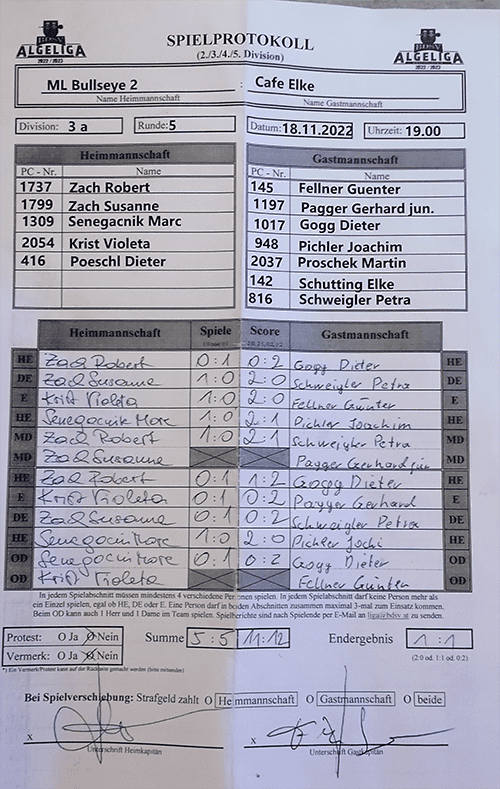 BDSV
ALGELIGA
2022 / 2023
SPIELPROTOKOLL
(2./3./4./5. Division)
BDSV
ALGELIGA
2022 / 2023
ML Bullseye 2 : Cafe Elke
Name Heimmannschaft Name Gastmannschaft
Division: 3 a Runde: 5 Datum: 18.11.2022 Uhrzeit: 19.00
Heimmannschaft Gastmannschaft
PC - Nr. Name PC - Nr. Name
1737 Zach Robert 145 Fellner Guenter
1799 Zach Susanne 1197 Pagger Gerhard jun.
1309 Senegacnik Marc 1017 Gogg Dieter
2054 Krist Violeta 948 Pichler Joachim
416 Poeschl Dieter 2037 Proschek Martin
142 Schutting Elke
816 Schweigler Petra
Heimmannschaft Spiele Score Gastmannschaft
HE Zach Robert 0:1 0:2 Gogg Dieter HE
DE Zach Susanne 1:0 2:0 Schweigler Petra DE
E Krist Violeta 1:0 2:0 Fellner Günter E
HE Senegacnik Marc 1:0 2:1 Pichler Joachim HE
MD Zach Robert 1:0 2:1 Schweigler Petra MD
MD Zach Susanne Pagger Gerhard jun MD
HE Zach Robert 0:1 1:2 Gogg Dieter HE
E Krist Violeta 0:1 0:2 Pagger Gerhard E
DE Zach Susanne 0:1 0:2 Schweigler Petra DE
HE Senegacnik Marc 1:0 2:0 Pichler Jochi HE
OD Senegacnik Marc 0:1 0:2 Gogg Dieter OD
OD Krist Violeta Fellner Günter OD
In jedem Spielabschnitt müssen mindestens 4 verschiedene Personen spielen. In jedem Spielabschnitt darf keine Person mehr als
ein Einzel spielen, egal ob HE, DE oder E. Eine Person darf in beiden Abschnitten zusammen maximal 3-mal zum Einsatz kommen.
Beim OD kann auch 1 Herr und 1 Dame im Team spielen. Spielberichte sind nach Spielende per E-Mail an liga@bdsv.at zu senden.
Protest: O Ja O Nein Summe 5:5 11:12 Endergebnis 1:1
Vermerk: O Ja O Nein (2:0 od. 1:1 od. 0:2)
*) Ein Vermerk/Protest kann auf der Rückseite gemacht werden (bitte mitsenden)
Bei Spielverschiebung: Strafgeld zahlt O Heimmannschaft O Gastmannschaft O beide
x x
Unterschrift Heimkapitän Unterschrift Gastkapitän